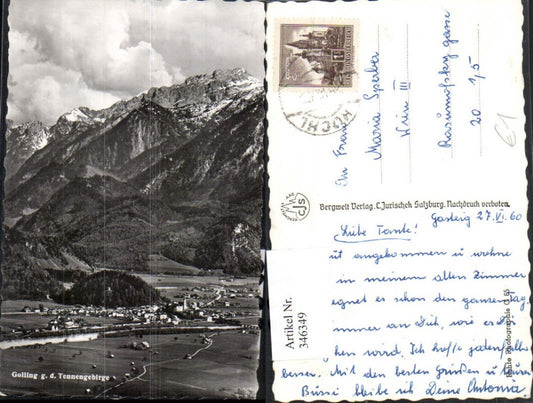 Golling g. d. Tennengebirge
KUCHL
An Frau
Maria Sperber
Wien III
Rasumofsky gasse
20 1,5
€1
Bergwelt Verlag, C. Jurischek Salzburg. Nachdruck verboten.
CJS
Gasteig 27.VI.60
Liebe Tante!
angekommen u wohne
in meinem alten Zimmer
egnet es schon den ganzen Tag,
mmer an Dich, wie es
hen wird. Ich hoffe jedenfalls
besser. Mit den besten Grüßen u
Bussi bleibe ich Deine Antonia
Artikel Nr.
346349
Photographie